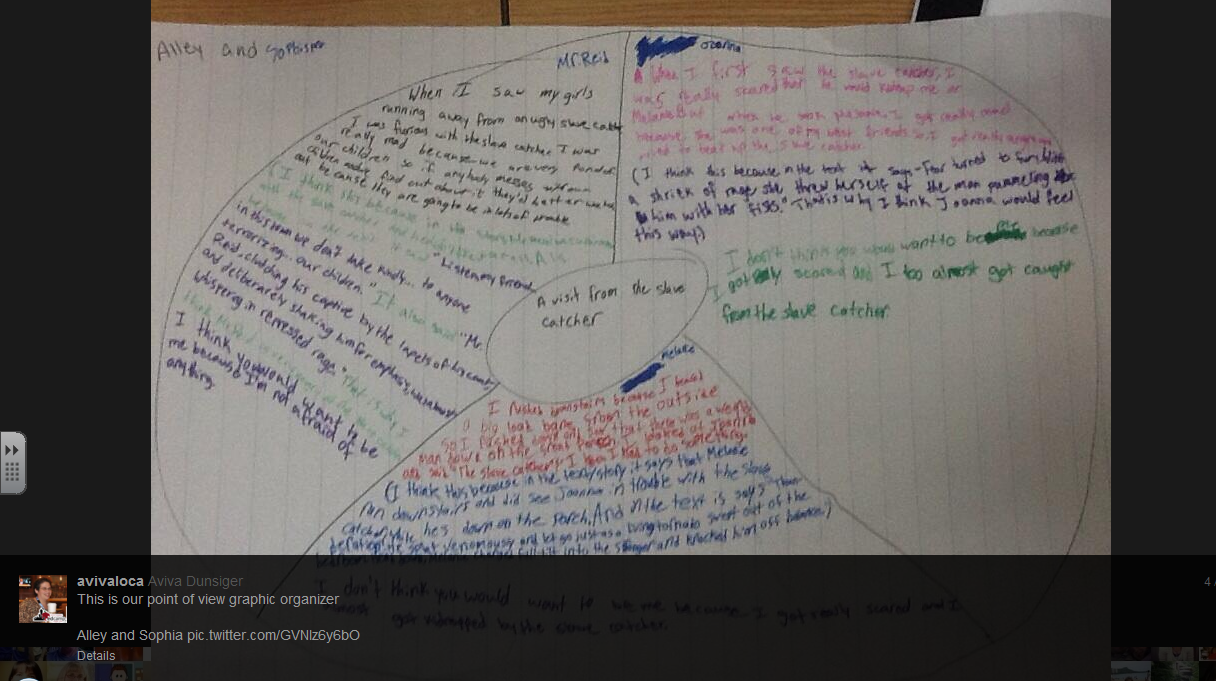 Alley and Sophia
Mr. Reid
When I saw my girls
running away from an ugly slave catcher
I was furious with the slave catcher I was
really mad because we are very fond of
our children so if anybody messes with our
children and we find out about it they'd better watch
out because they are going to be in lots of trouble
(I think this because in the
"Listen my friend,
in this town we don't take kindly... to anyone
terrorizing... our children." It also said "Mr.
Reid, clutching his captive by the lapels of his coat,
and deliberately shaking him for emphasis, was almost
whispering in repressed rage." That is why I
think
I think you would want to be
me because I'm not afraid of
anything.
Joanna
When I first saw the slave catcher, I
was really scared that he would kidnap me or
Melanie. But when he I got really mad
because she was one of my best friends so I got really angry and
tried to beat up the slave catcher.
(I think this because in the text it says-Fear turned to fury. With
a shriek of rage she threw herself at the man pummeling
him with her fists." That's why I think Joanna would feel
this way)
I don't think you would want to be me because
I got really scared and I too almost got caught
from the slave catcher
A visit from the slave
catcher
Melanie
I rushed downstairs because I heard
a big loud bang from the outside
so I rushed down and saw that there was a weird
man down on the front porch. I looked at Joanna
and said "The slave catcher". I knew I had to do something.
(I think this because in the story it says that Melanie
ran downstairs and did see Joanna in trouble with the slave
catcher while he's down on the porch. And in the text it says "Then
just as a living tornado swept out of the
full tilt into the stranger and knocked him off balance.)
I don't think you would want to be me because I got really scared and I
almost got kidnapped by the slave catcher.
avivaloca Aviva Dunsiger
This is our point of view graphic organizer
Alley and Sophia pic.twitter.com/GVNlz6y6bO
Details
4